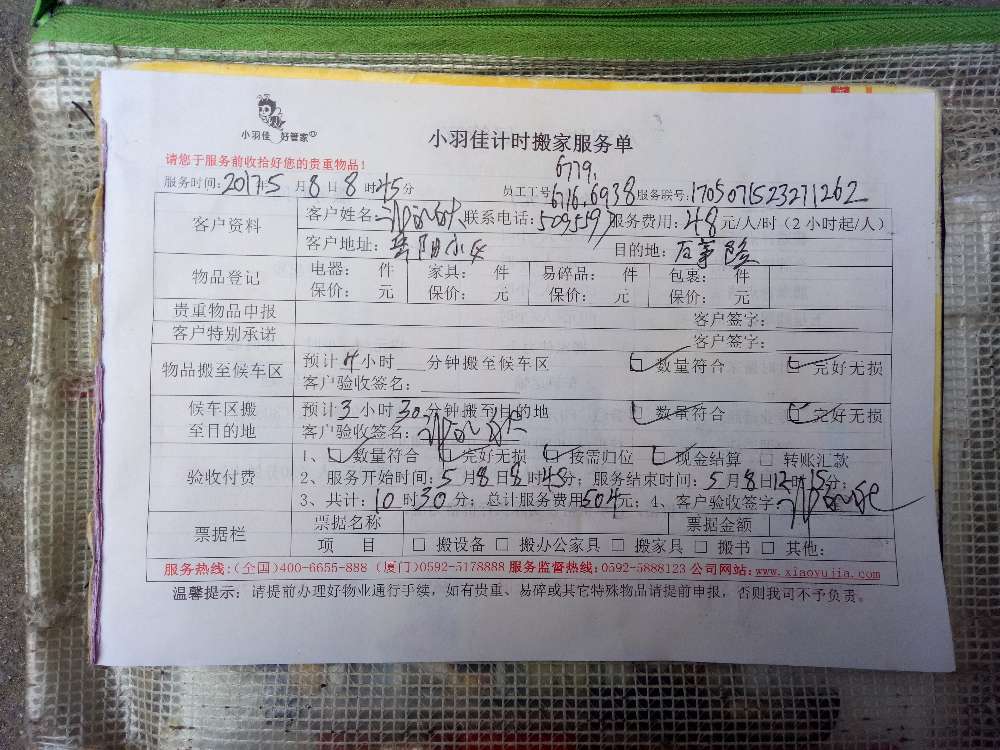 小羽佳 好管家
小羽佳计时搬家服务单
请您于服务前收拾好您的贵重物品!
6779.
服务时间:2017年5月8日8时45分 员工工号6716.6938服务联号:1705071523271262
客户资料
客户姓名: 联系电话:509559 服务费用:48元/人/时(2小时起/人)
客户地址:岳阳小区 目的地:
物品登记
电器: 件 家具: 件 易碎品: 件 包裹: 件
保价: 元 保价: 元 保价: 元 保价: 元
贵重物品申报 客户签字:
客户特别承诺 客户签字:
物品搬至候车区
预计4小时 分钟搬至候车区 数量符合 完好无损
客户验收签名:
候车区搬至目的地
预计3小时30分钟搬至目的地 数量符合 完好无损
客户验收签名:
验收付费
1、数量符合 完好无损 按需归位 现金结算 转账汇款
2、服务开始时间:5月8日8时45分;服务结束时间:5月8日12时15分;
3、共计:10时30分;总计服务费用504元;4、客户验收签字:
票据栏
票据名称 票据金额
项 目 搬设备 搬办公家具 搬家具 搬书 其他:
服务热线:(全国)400-6655-888 (厦门)0592-5178888 服务监督热线:0592-5888123 公司网站:www.xiaoyujia.com
温馨提示:请提前办理好物业通行手续,如有贵重、易碎或其它特殊物品请提前申报,否则我司不予负责。